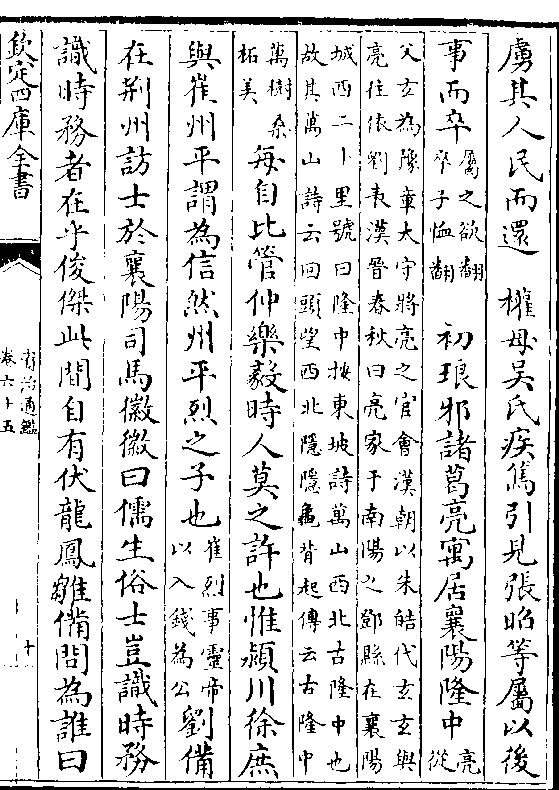 虜其人民而還 權母吳氏疾篤引見張昭等屬以後
事而卒屬之欲翻卒子恤翻 初琅邪諸葛亮寓居襄陽隆中亮從
父玄為豫章太守將亮之官會漢朝以朱皓代玄玄與
亮往依劉表漢晉春秋曰亮家于南陽之鄧縣在襄陽
城西二十里號曰隆中按東坡詩萬山西北古隆中也
故其萬山詩云回頭望西北隱隱龜背起傳云古隆中
萬樹桑柘美每自比管仲樂毅時人莫之許也惟潁川徐庶
與崔州平謂為信然州平烈之子也崔烈事靈帝以入錢為公劉備
在荆州訪士於襄陽司馬徽徽曰儒生俗士豈識時務
識時務者在乎俊傑此間自有伏龍鳳雛備問為誰曰
欽定四庫全書
資治通鑑
卷六十五
十